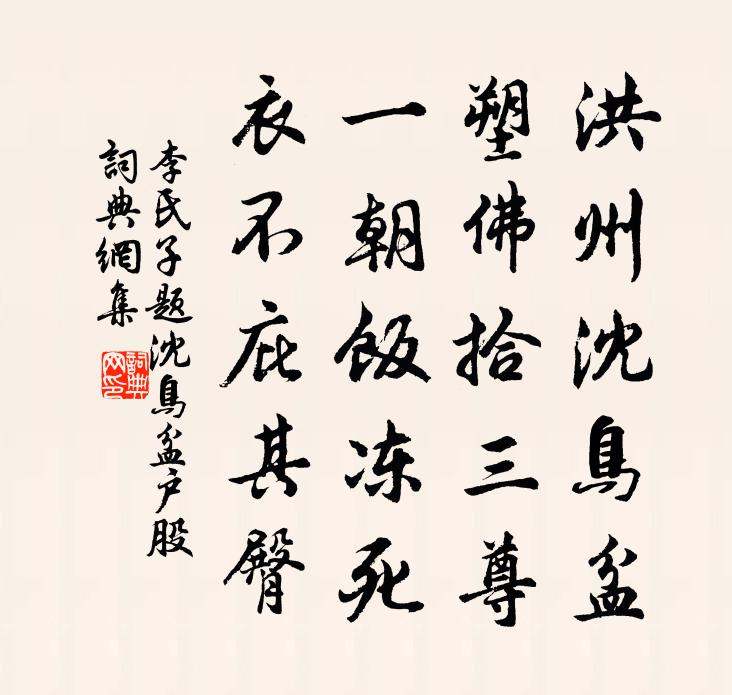 洪州沈鳥盆
塑佛拾三尊
一朝飯冻死
衣不庇其臀
李氏子题沈鳥盆户股
詞典網集
詞典
网印